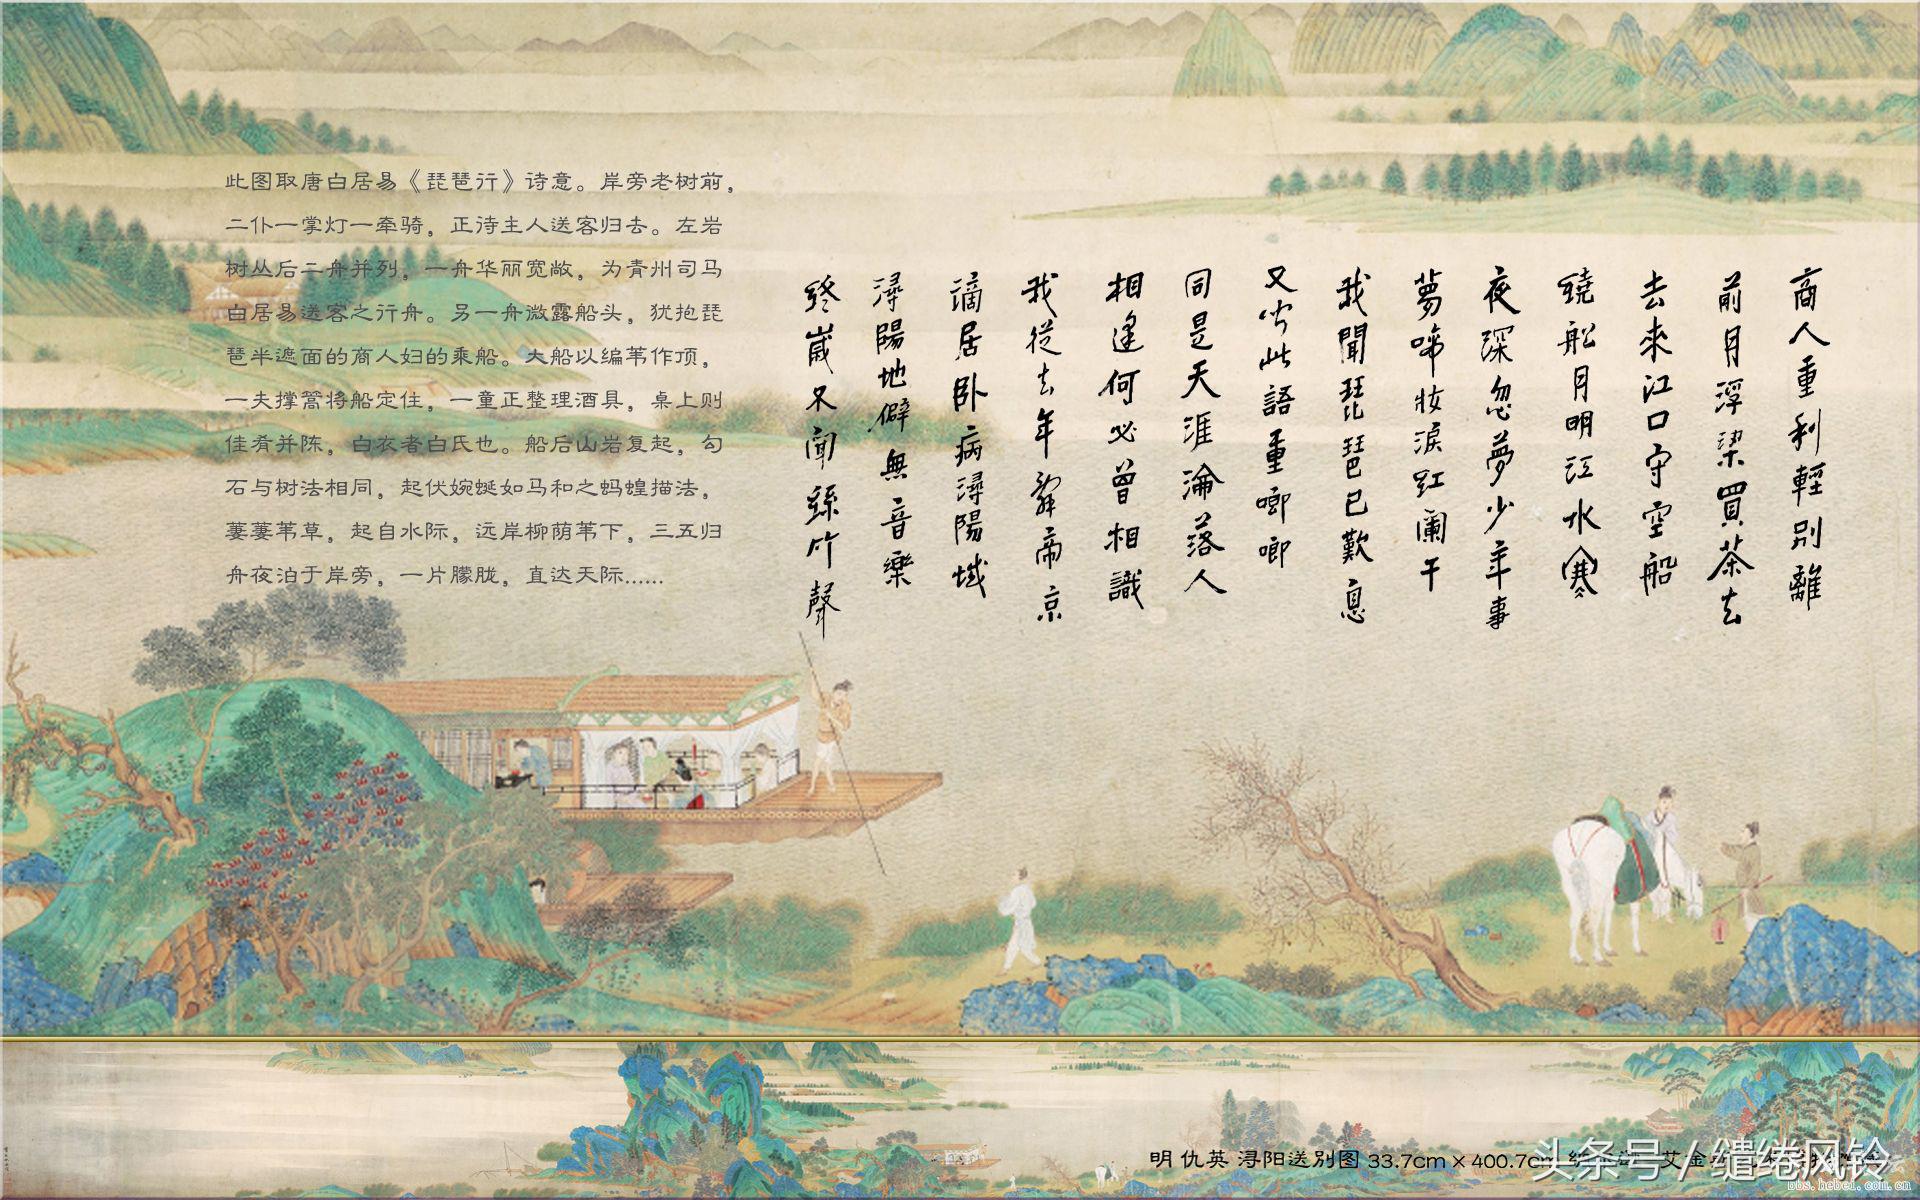 此图取唐白居易《琵琶行》诗意。岸旁老树前，
二仆一掌灯一牵骑，正待主人送客归去。左岩
树丛后二舟并列，一舟华丽宽敞，为青州司马
白居易送客之行舟。另一舟微露船头，犹抱琵
琶半遮面的商人妇的乘船。大船以编苇作顶，
一夫撑篙将船定住，一童正整理酒具，桌上则
佳肴并陈，白衣者白氏也。船后山岩复起，勾
石与树法相同，起伏婉蜒如马和之蚂蝗描法，
萋萋苇草，起自水际，远岸柳荫苇下，三五归
舟夜泊于岸旁，一片朦胧，直达天际......
商人重利輕別離
前月浮梁買茶去
去來江口守空船
繞船月明江水寒
夜深忽夢少年事
夢啼妝淚紅闌干
我聞琵琶已歎息
又聞此語重唧唧
同是天涯淪落人
相逢何必曾相識
我從去年辭帝京
謫居卧病潯陽城
潯陽地僻無音樂
終歲不聞絲竹聲
明 仇英 浔阳送别图 33.7cm × 400.7cm
头条号 / 缱绻风铃
bbs.hebei.com.cn